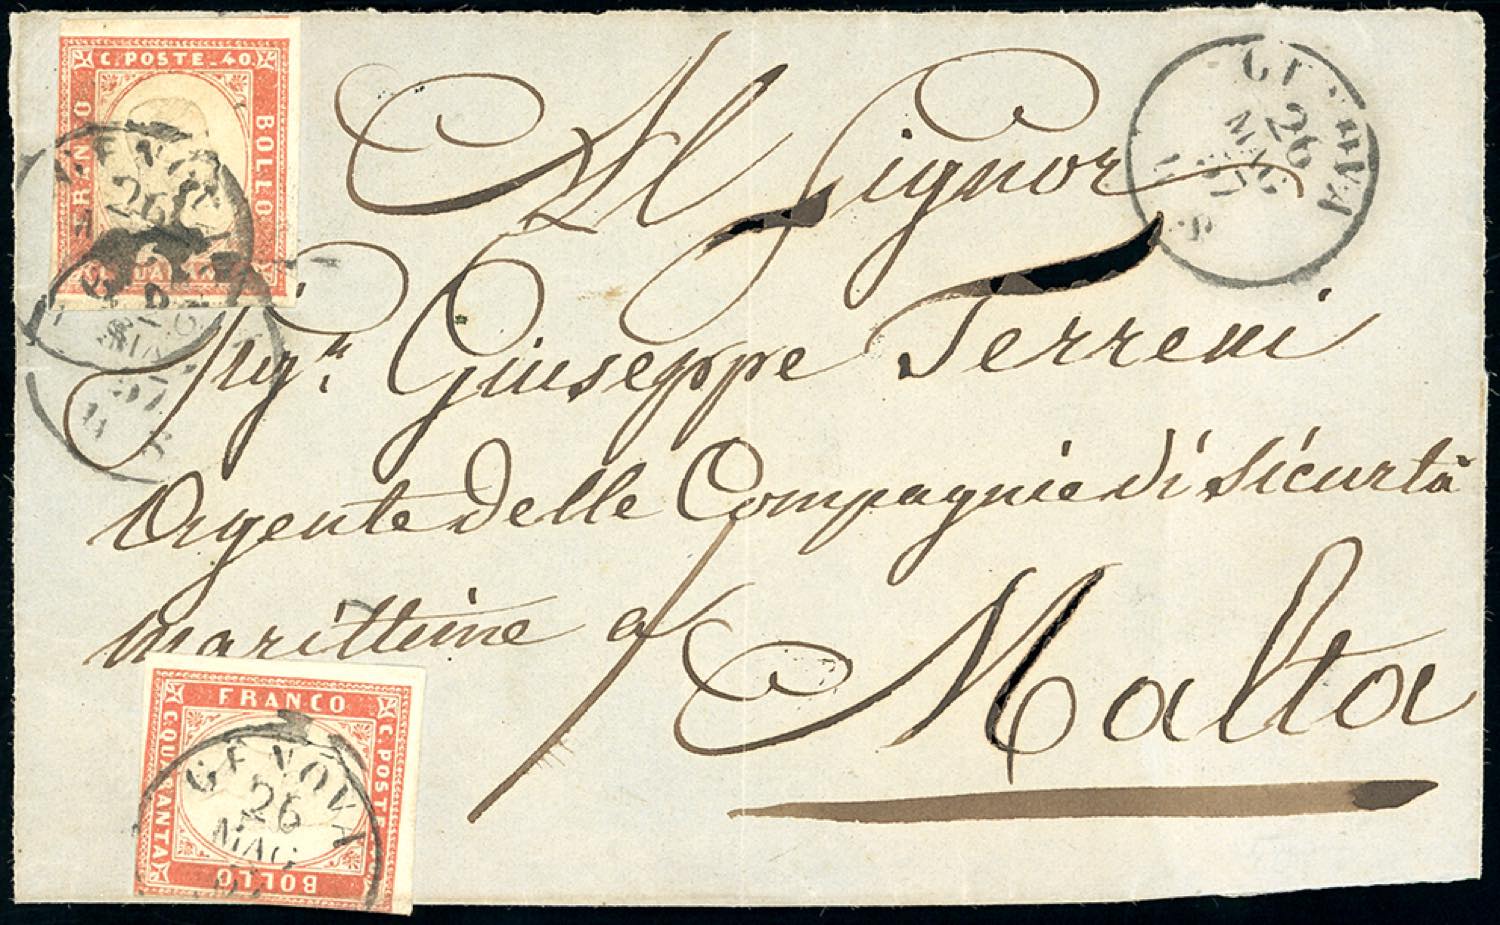 C. POSTE. 40.
FRANCO
BOLLO
GENOVA
26
GENOVA
26
MAG
57
Al Signor
Sigr. Giuseppe Terreni
Agente delle Compagnie di Sicurtà
marittime a
Malta
FRANCO
C. POSTE
C. QUARANTA
BOLLO
GENOVA
26
MAG